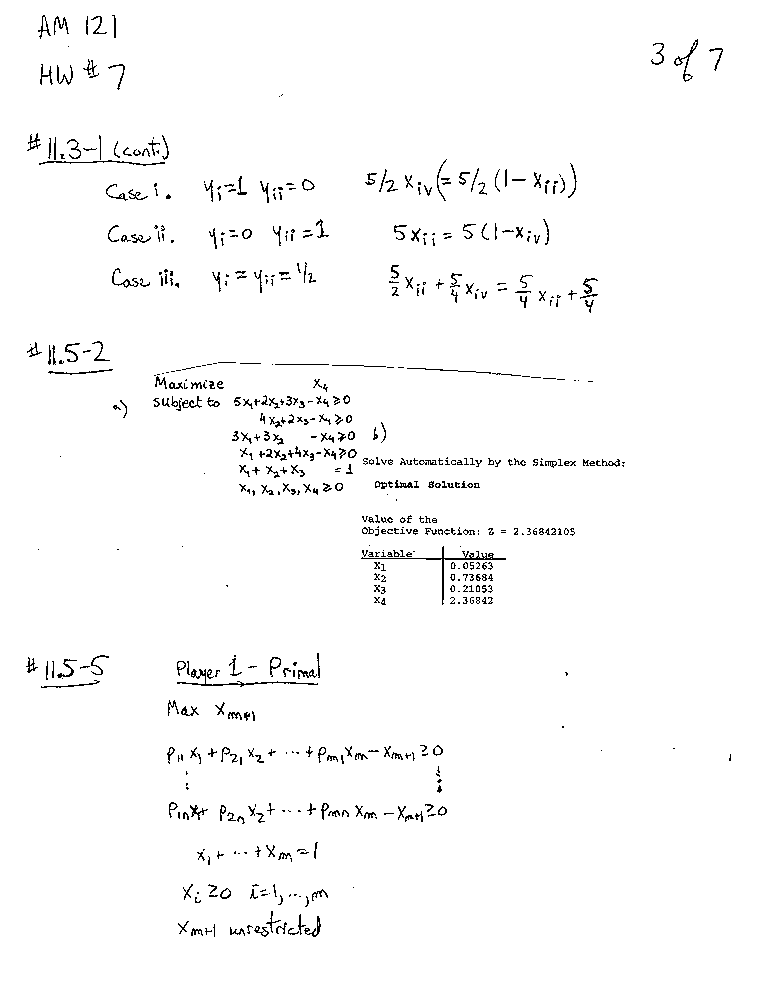 AM 121
HW # 7
3 of 7
# 11.3-1 (cont.)
Case i. yi=1 yii=0 5/2 xiv (= 5/2 (1-xii))
Case ii. yi=0 yii=1 5xii = 5(1-xiv)
Case iii. yi = yii = 1/2 5/2 xii + 5/4 xiv = 5/4 xii + 5/4
# 11.5-2
a)
Maximize x4
subject to 5x1+2x2+3x3-x4≥0
4x2+2x3-x4≥0
3x1+3x2 -x4≥0
x1+2x2+4x3-x4≥0
x1+x2+x3 =1
x1, x2, x3, x4≥0
b)
Solve Automatically by the Simplex Method:
Optimal Solution
Value of the
Objective Function: Z = 2.36842105
Variable Value
X1 0.05263
X2 0.73684
X3 0.21053
X4 2.36842
# 11.5-5 Player 1 - Primal
Max xm+1
p11 x1 + p21 x2 + ... + pm1 xm - xm+1 ≥0
⋮ ⋮
p1n x1+ p2n x2 + ... + pmn xm - xm+1 ≥0
x1 + ... + xm = 1
xi ≥0 i=1,...,m
xm+1 unrestricted